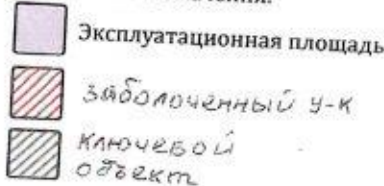 Эксплуатационная площадь
заболоченный у-к
ключевой
объект